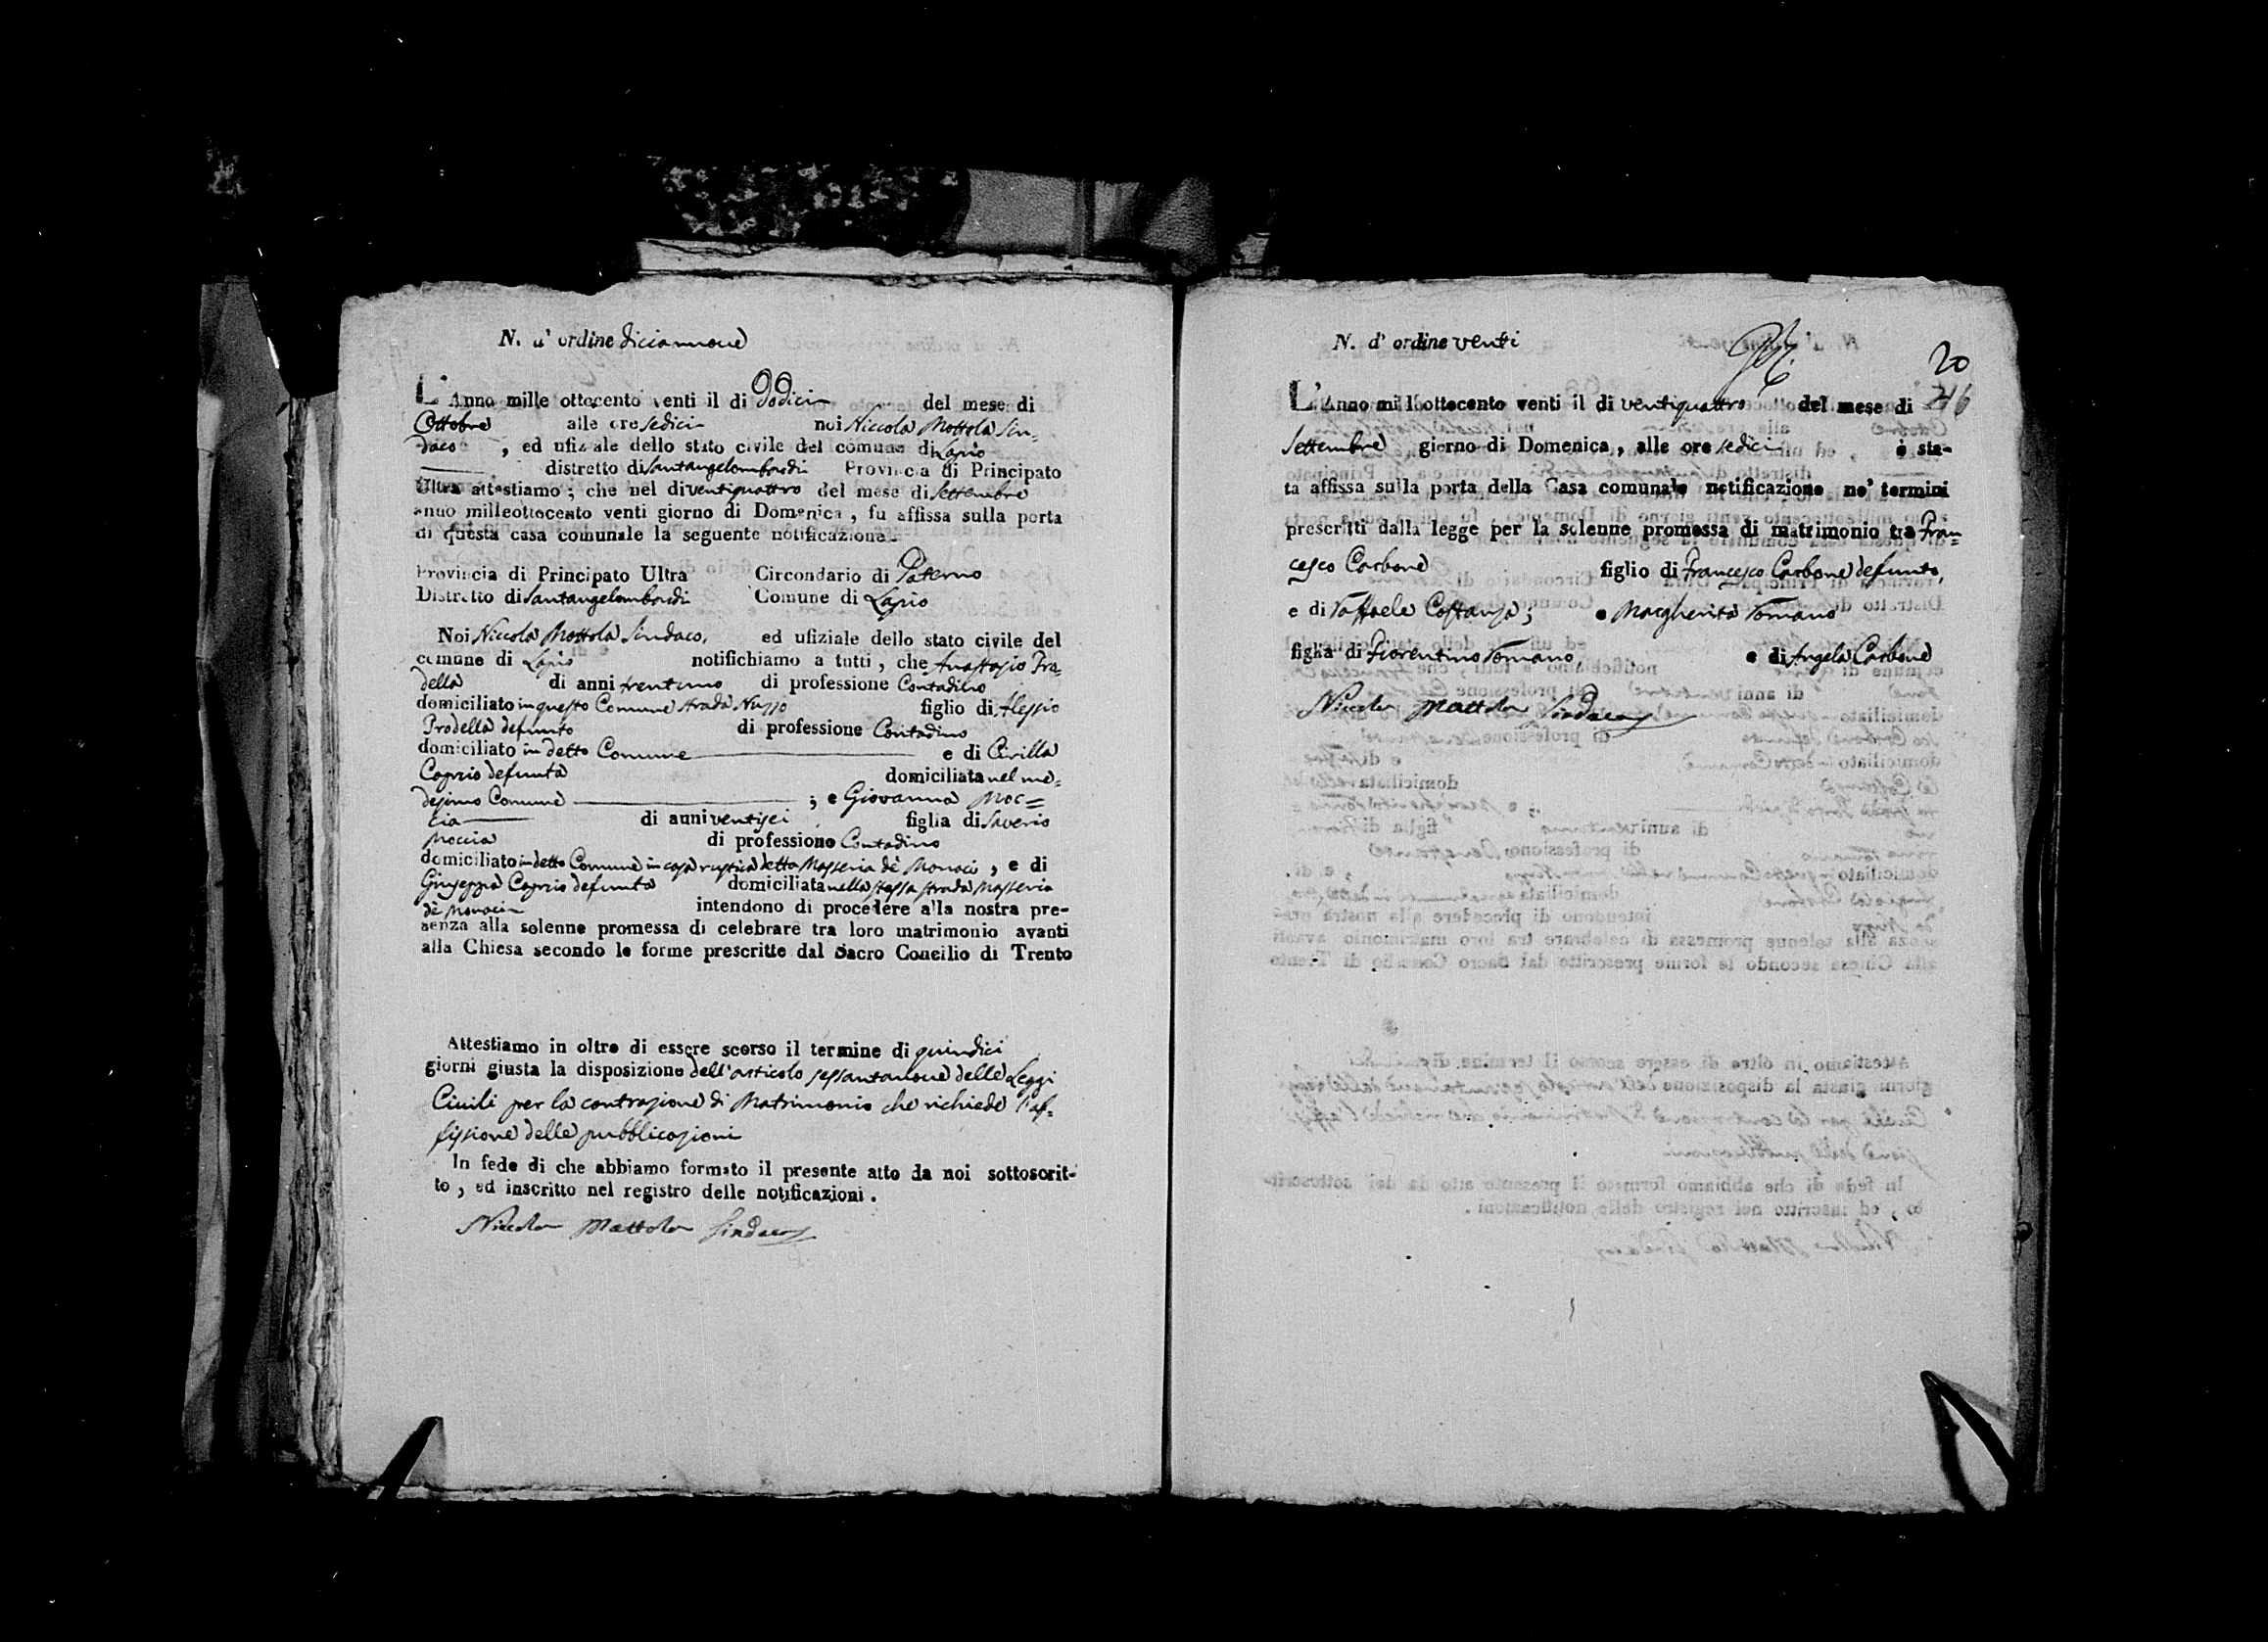 N. d' ordine diciannove
L'Anno mille ottocento venti il di Dodici del mese di
Ottobre alle ore sedici noi Niccola Mottola Sin=
daco , ed ufiziale dello stato civile del comune di Lapio
distretto di Santangelombardi Provincia di Principato
Ultra attestiamo ; che nel di ventiquattro del mese di Settembre
anno milleottocento venti giorno di Domenica , fu affissa sulla porta
di questa casa comunale la seguente notificazione.
Provincia di Principato Ultra Circondario di Paterno
Distretto di Santangelombardi Comune di Lapio
Noi Niccola Mottola Sindaco, ed ufiziale dello stato civile del
comune di Lapio notifichiamo a tutti , che Anastasio Pra=
della di anni trentuno di professione Contadino
domiciliato in questo Comune strada Nuzzo figlio di Alessio
Pradella defunto di professione Contadino
domiciliato in detto Comune e di Cirilla
Caprio defunta domiciliata nel me=
desimo Comune ; e Giovanna Moc=
cia di anni ventisei figlia di Saverio
Moccia di professione Contadino
domiciliato in detto Comune in casa rustica detta Masseria de Monaci , e di
Giuseppa Caprio defunta domiciliata nella stessa strada Masseria
de Monaci intendono di procedere alla nostra pre-
senza alla solenne promessa di celebrare tra loro matrimonio avanti
alla Chiesa secondo le forme prescritte dal Sacro Concilio di Trento
Attestiamo in oltre di essere scorso il termine di quindici
giorni giusta la disposizione dell'articolo sessantanove delle Leggi
Civili per la contrazione di Matrimonio che richiede l'af=
fissione delle pubblicazioni
In fede di che abbiamo formato il presente atto da noi sottoscrit-
to , ed inscritto nel registro delle notificazioni .
Niccola Mottola Sindaco
N. d' ordine venti
20
216
L'Anno milleottocento venti il di ventiquattro del mese di
Settembre giorno di Domenica , alle ore sedici è sta-
ta affissa sulla porta della Casa comunale notificazione ne' termini
prescritti dalla legge per la solenne promessa di matrimonio tra Fran=
cesco Carbone figlio di Francesco Carbone defunto,
e di Raffaela Costanza ; e Margherita Romano
figlia di Fiorentino Romano, e di Angela Carbone
Niccola Mottola Sindaco